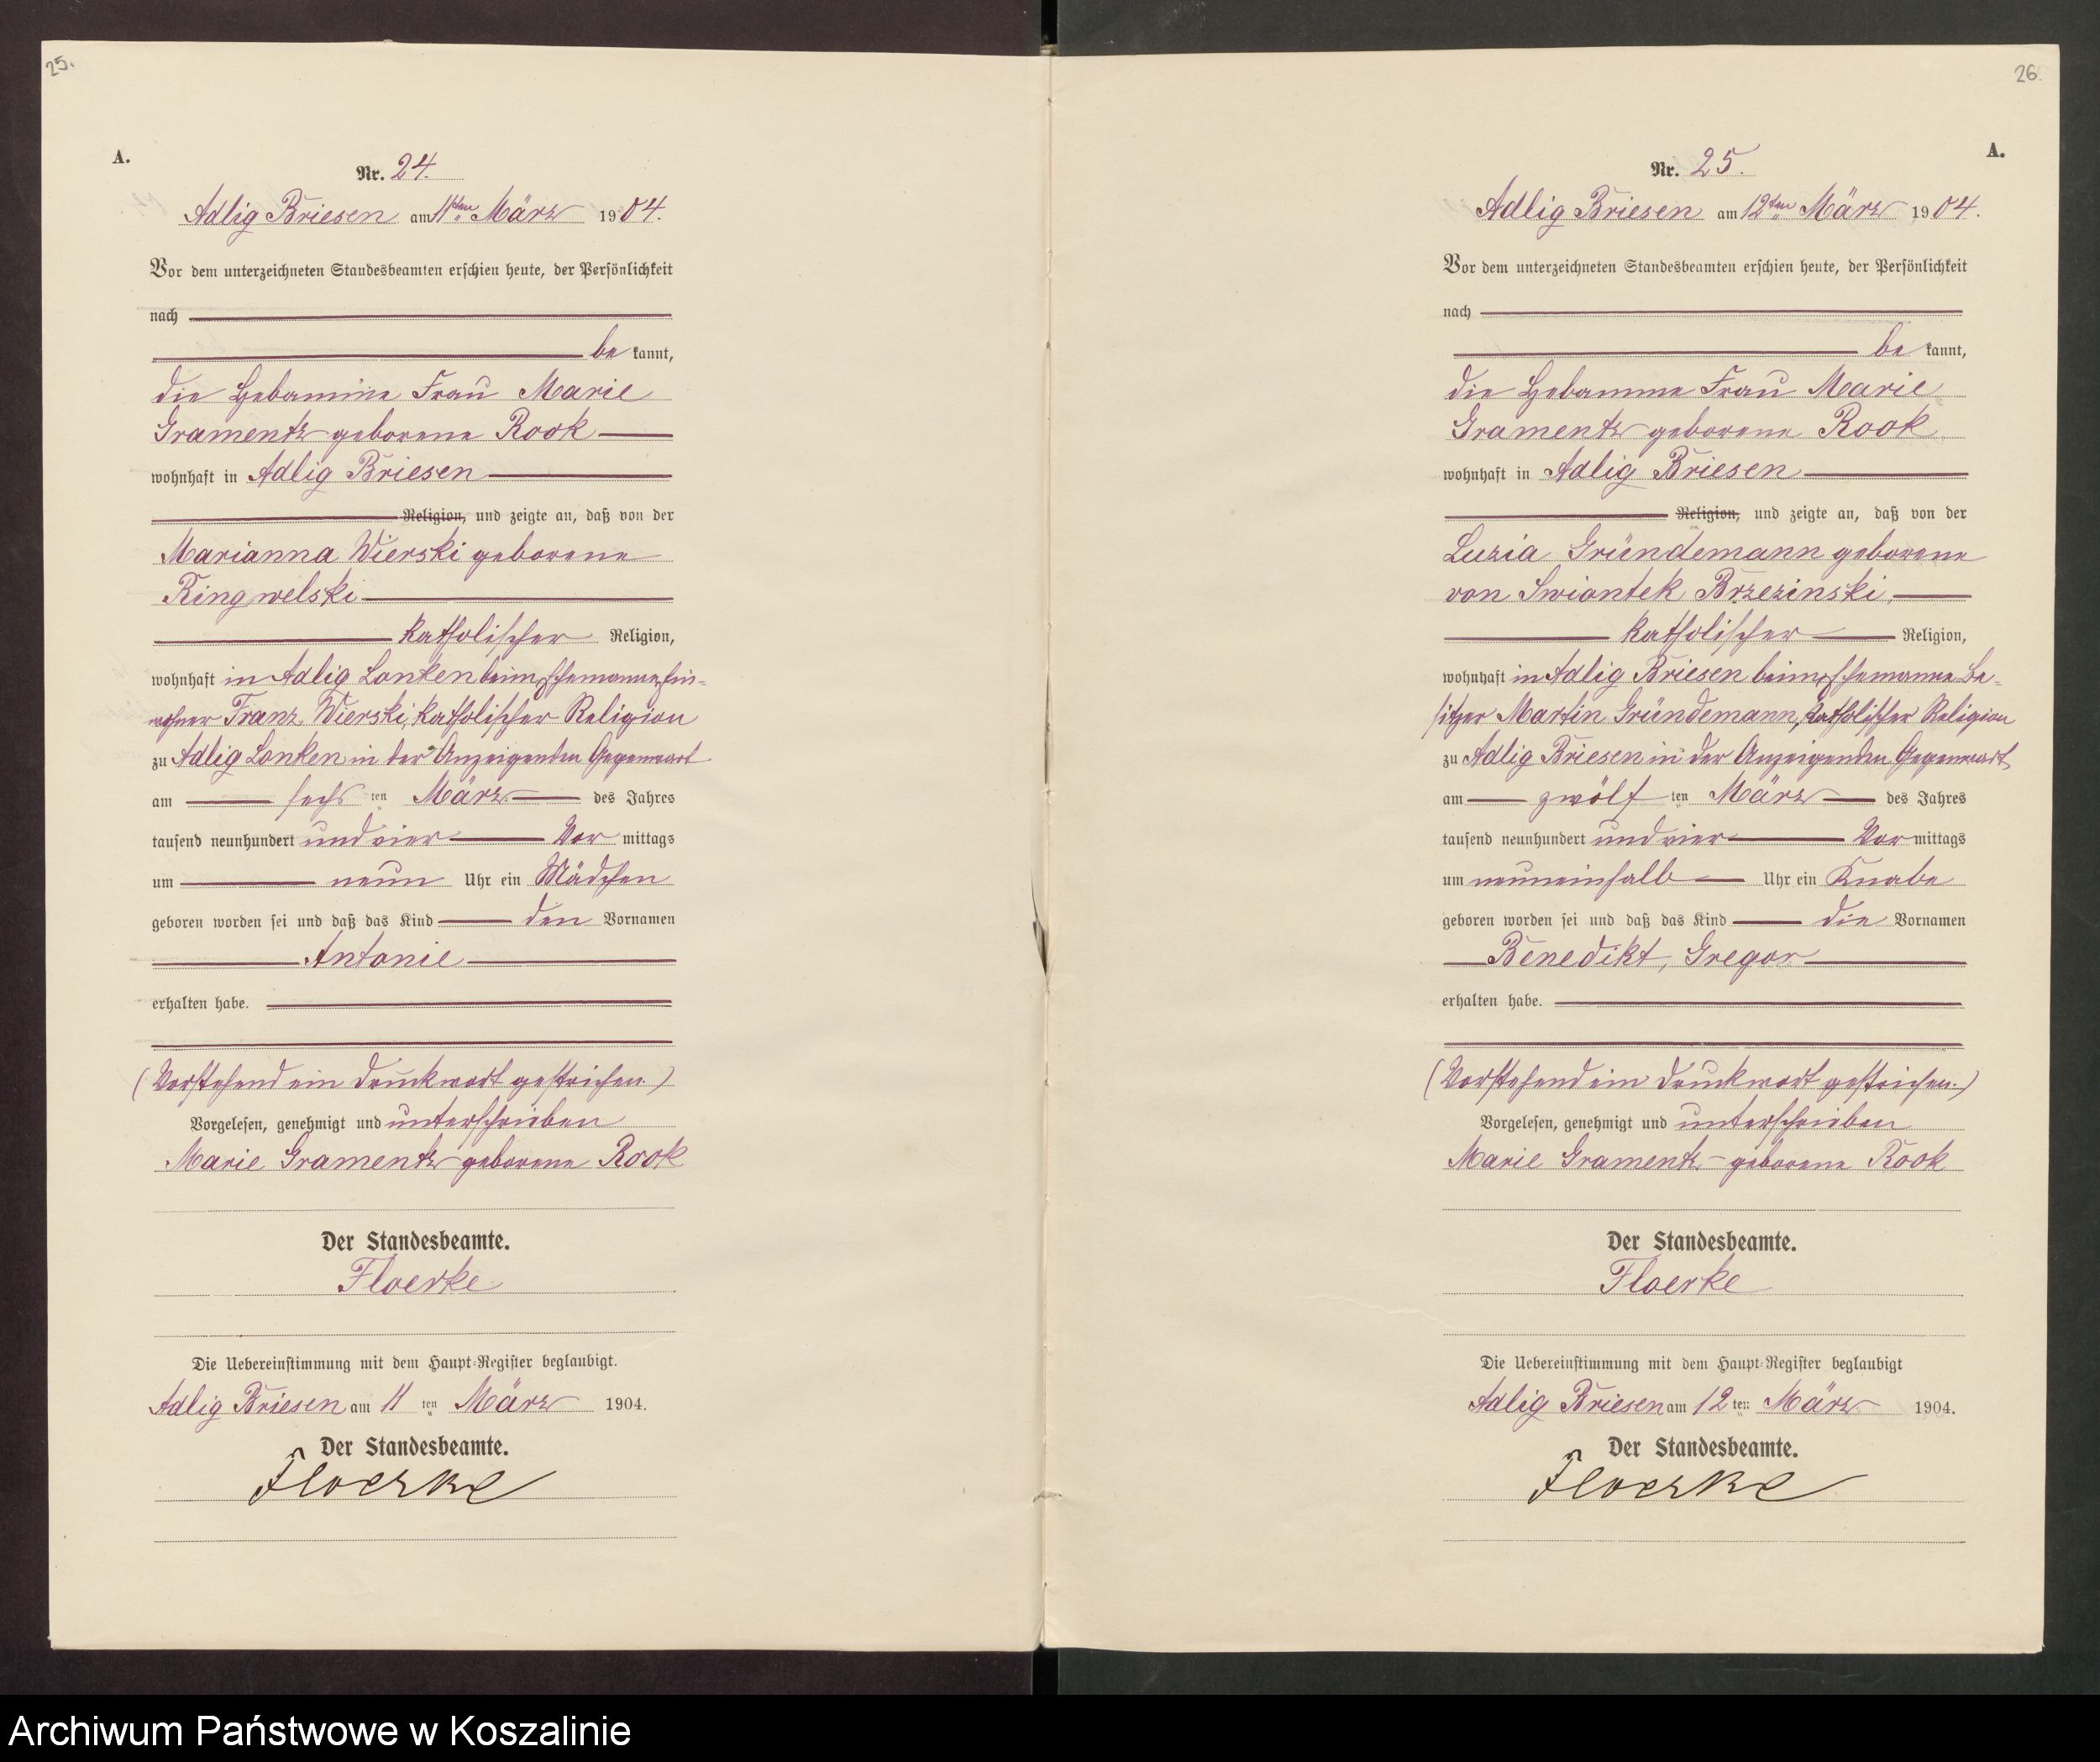 25.
A.
Nr. 24.
Adlig Briesen am 11ten März 1904.
Vor dem unterzeichneten Standesbeamten erschien heute, der Persönlichkeit
nach
be kannt,
die Hebamme Frau Marie
Gramentz geborene Rook
wohnhaft in Adlig Briesen
Religion, und zeigte an, daß von der
Marianna Wierski geborene
Ringwelski
katholischer Religion,
wohnhaft in Adlig Lonken beim Ehemanne Ein-
wohner Franz Wierski, katholischer Religion
zu Adlig Lonken in der Anzeigenden Gegenwart
am sechsten März des Jahres
tausend neunhundert und vier Vor mittags
um neun Uhr ein Mädchen
geboren worden sei und daß das Kind den Vornamen
Antonie
erhalten habe.
(Vorstehend ein Druckwort gestrichen.)
Vorgelesen, genehmigt und unterschrieben
Marie Gramentz geborene Rook
Der Standesbeamte.
Floerke
Die Uebereinstimmung mit dem Haupt-Register beglaubigt.
Adlig Briesen am 11 ten März 1904.
Der Standesbeamte.
Floerke
26.
A.
Nr. 25.
Adlig Briesen am 12ten März 1904.
Vor dem unterzeichneten Standesbeamten erschien heute, der Persönlichkeit
nach
be kannt,
die Hebamme Frau Marie
Gramentz geborene Rook
wohnhaft in Adlig Briesen
Religion, und zeigte an, daß von der
Luzia Gründemann geborene
von Swiontek Brzezinski,
katholischer Religion,
wohnhaft in Adlig Briesen beim Ehemanne Be-
sitzer Martin Gründemann, katholischer Religion
zu Adlig Briesen in der Anzeigenden Gegenwart
am zwölften März des Jahres
tausend neunhundert und vier Vor mittags
um neuneinhalb Uhr ein Knabe
geboren worden sei und daß das Kind die Vornamen
Benedikt, Gregor
erhalten habe.
(Vorstehend ein Druckwort gestrichen.)
Vorgelesen, genehmigt und unterschrieben
Marie Gramentz geborene Rook
Der Standesbeamte.
Floerke
Die Uebereinstimmung mit dem Haupt-Register beglaubigt
Adlig Briesen am 12 ten März 1904.
Der Standesbeamte.
Floerke
Archiwum Państwowe w Koszalinie